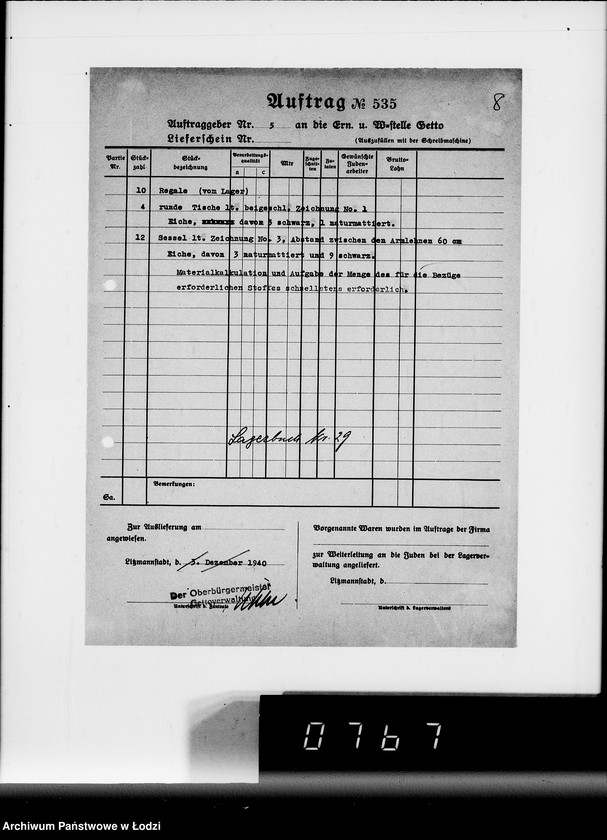 8
Auftrag № 535
Auftraggeber Nr. 5 an die Ern. u. W-stelle Getto
Lieferschein Nr.
(Auszufüllen mit der Schreibmaschine)
Partie Nr. Stückzahl Stückbezeichnung Verarbeitungsqualität a c Mtr Zugeschnitten Zutaten Gewünschte Judenarbeiter Brutto-Lohn
10 Regale (vom Lager)
4 runde Tische lt. beigeschl. Zeichnung No. 1
Eiche, davon 3 schwarz, 1 naturmattiert.
12 Sessel lt. Zeichnung No. 3, Abstand zwischen den Armlehnen 60 cm
Eiche, davon 3 naturmattiert und 9 schwarz.
Materialkalkulation und Aufgabe der Menge des für die Bezüge
erforderlichen Stoffes schnellstens erforderlich.
Lagerbuch Nr. 29
Bemerkungen:
Sa.
Zur Auslieferung am
angewiesen.
Litzmannstadt, d. 3. Dezember 1940
Der Oberbürgermeister
Gettoverwaltung
Unterschrift d. Zentrale
Vorgenannte Waren wurden im Auftrage der Firma
zur Weiterleitung an die Juden bei der Lagerver-
waltung angeliefert.
Litzmannstadt, d.
Unterschrift d. Lagerverwalters
0767
Archiwum Państwowe w Łodzi